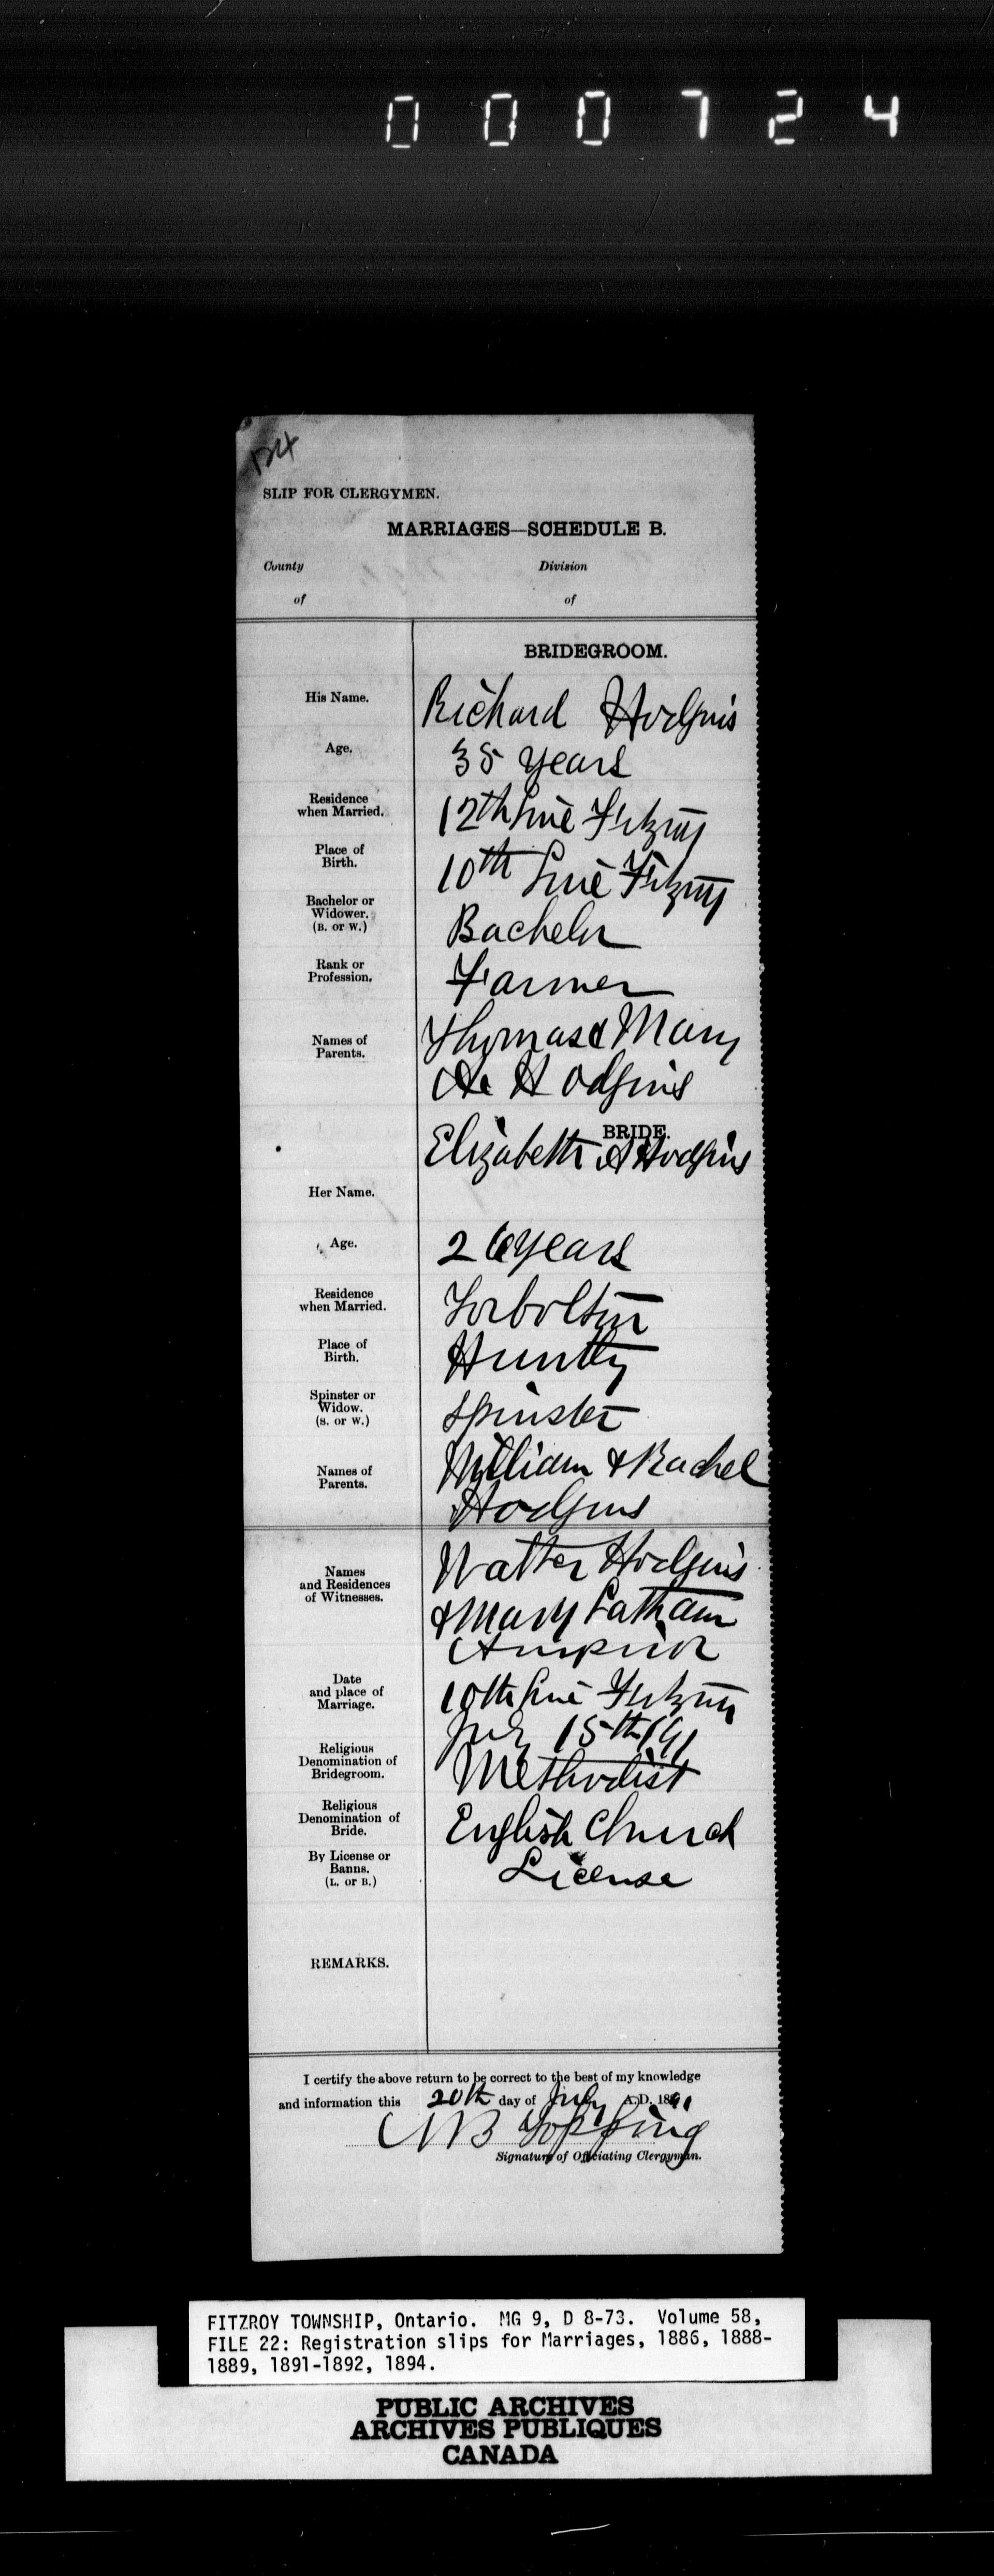 000724
124
SLIP FOR CLERGYMEN.
MARRIAGES—SCHEDULE B.
County Division
of of
BRIDEGROOM.
His Name. Richard Hodgins
Age. 35 years
Residence when Married. 12th Line Fitzroy
Place of Birth. 10th Line Fitzroy
Bachelor or Widower. (B. or W.) Bachelor
Rank or Profession. Farmer
Names of Parents. Thomas & Mary
Hodgins
BRIDE.
Her Name. Elizabeth A Hodgins
Age. 26 years
Residence when Married. Torbolton
Place of Birth. Huntly
Spinster or Widow. (S. or W.) Spinster
Names of Parents. William & Rachel
Hodgins
Names and Residences of Witnesses. Walter Hodgins
& Mary Latham
Arnprior
Date and place of Marriage. 10th Line Fitzroy
July 15th /91
Religious Denomination of Bridegroom. Methodist
Religious Denomination of Bride. English Church
By License or Banns. (L. or B.) License
REMARKS.
I certify the above return to be correct to the best of my knowledge
and information this 20th day of July A.D. 1891
Topping
Signature of Officiating Clergyman.
FITZROY TOWNSHIP, Ontario. MG 9, D 8-73. Volume 58,
FILE 22: Registration slips for Marriages, 1886, 1888-
1889, 1891-1892, 1894.
PUBLIC ARCHIVES
ARCHIVES PUBLIQUES
CANADA